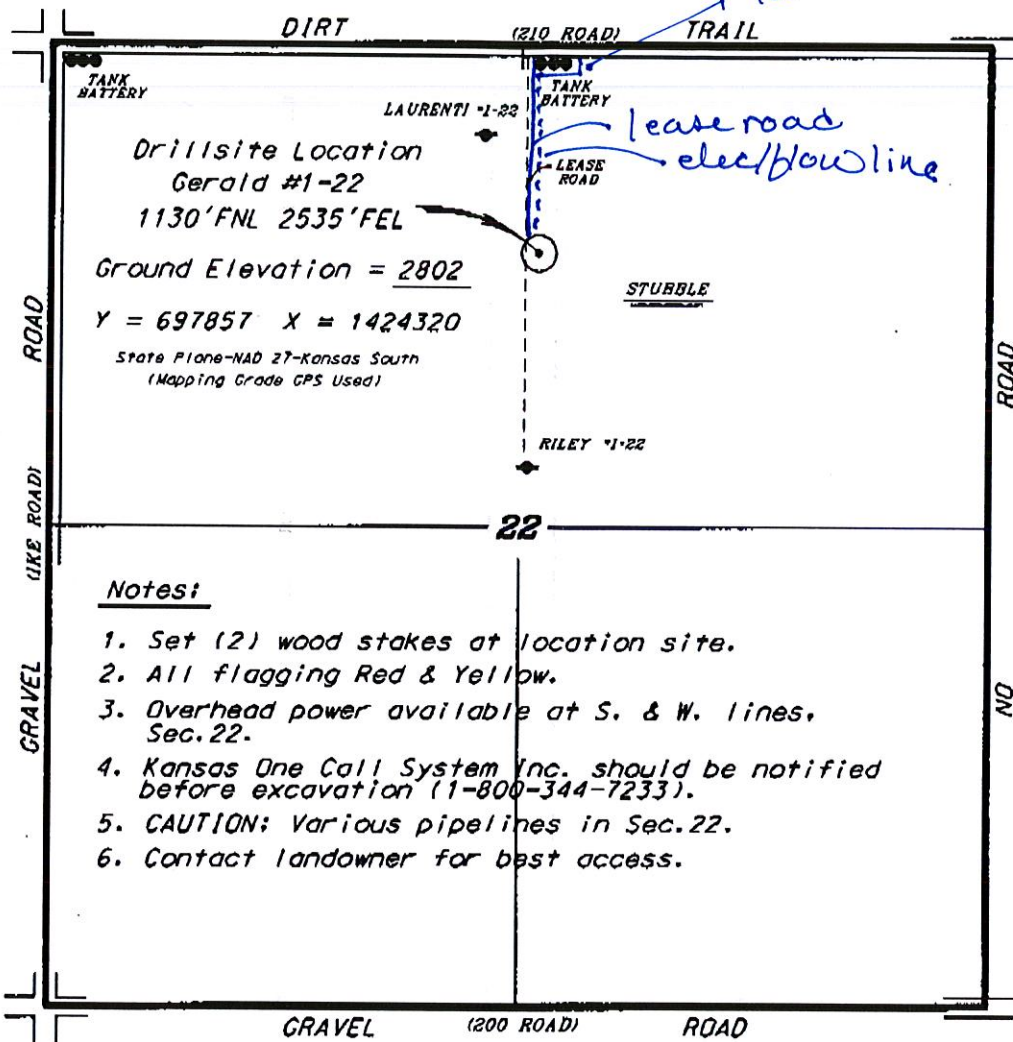 DIRT (210 ROAD) TRAIL
TANK
BATTERY
TANK
BATTERY
LAURENTI #1-22
lease road
elec/flowline
LEASE
ROAD
Drillsite Location
Gerald #1-22
1130'FNL 2535'FEL
Ground Elevation = 2802
STUBBLE
Y = 697857 X = 1424320
State Plane-NAD 27-Kansas South
(Mapping Grade GPS Used)
ROAD
ROAD
RILEY #1-22
22
(IKE ROAD)
Notes:
1. Set (2) wood stakes at location site.
2. All flagging Red & Yellow.
3. Overhead power available at S. & W. lines,
Sec.22.
4. Kansas One Call System Inc. should be notified
before excavation (1-800-344-7233).
5. CAUTION: Various pipelines in Sec.22.
6. Contact landowner for best access.
GRAVEL
NO
GRAVEL (200 ROAD) ROAD